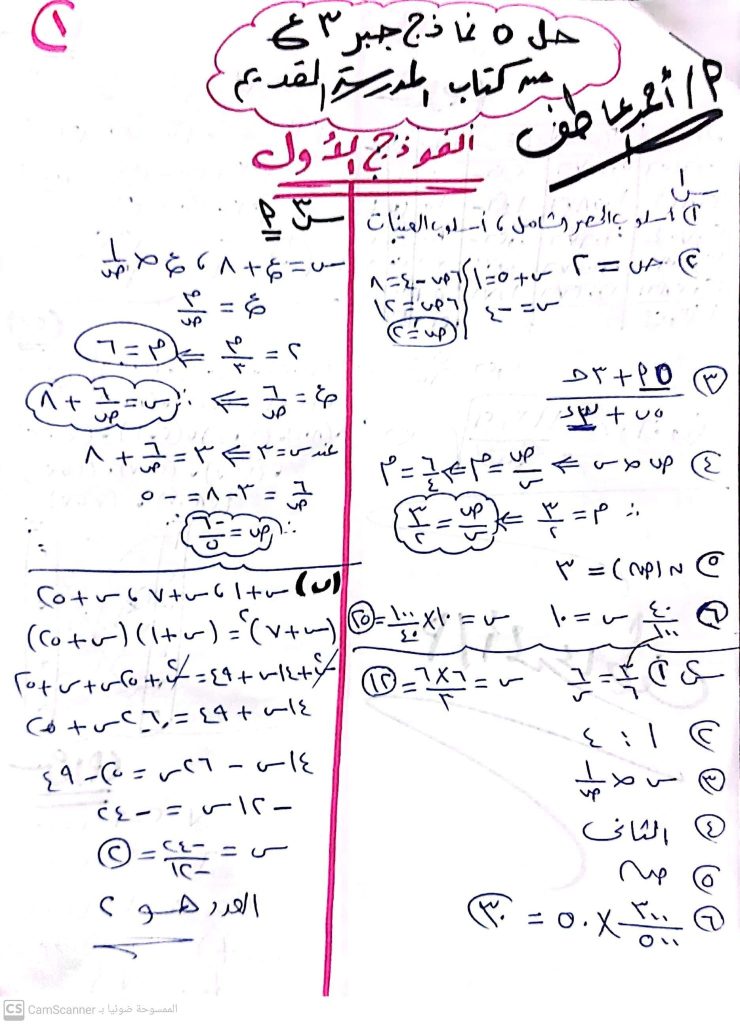 ١
حل ٥ نماذج جبر ٣ ع
من كتاب المدرسة القديم
م/ أحمد عاطف
النموذج الأول
س١
① أسلوب الحصر الشامل، أسلوب العينات
② ص = ٢
س + ٥ = ١
س = -٤
٦ص - ٤ = ٨
٦ص = ١٢
ص = ٢
③ (٥م + ٣ﺣ) / (٥ب + ٣د)
④ ص ∝ س ⇐ ص/س = م ⇐ ٦/٤ = م
∴ م = ٣/٢ ⇐ ص/س = ٣/٢
⑤ ن(ص) = ٣
⑥ ٤٠/١٠٠ س = ١٠ س = ١٠ × ١٠٠/٤٠ = ٢٥
س٢ ① ٣/٦ = ٦/س س = ٦×٦/٣ = ١٢
② ١ : ٤
③ س ∝ ١/ص
④ الثانى
⑤ صـ
⑥ ٣٠٠/٥٠٠ × ٥٠ = ٣٠
س٣ م
س = ع + ٨ ، ع ∝ ١/ص
ع = م/ص
٢ = م/٣ ⇐ م = ٦
ع = ٦/ص ⇐ ∴ س = ٦/ص + ٨
عند س = ٣ ⇐ ٣ = ٦/ص + ٨
٦/ص = ٣ - ٨ = -٥
∴ ص = -٦/٥
(ب) س + ١ ، س + ٧ ، س + ٢٥
(س + ٧)² = (س + ١) (س + ٢٥)
س² + ١٤س + ٤٩ = س² + ٢٥س + س + ٢٥
١٤س + ٤٩ = ٢٦س + ٢٥
١٤س - ٢٦س = ٢٥ - ٤٩
-١٢س = -٢٤
س = -٢٤/-١٢ = ٢
العدد هو ٢
CS CamScanner الممسوحة ضوئيا بـ